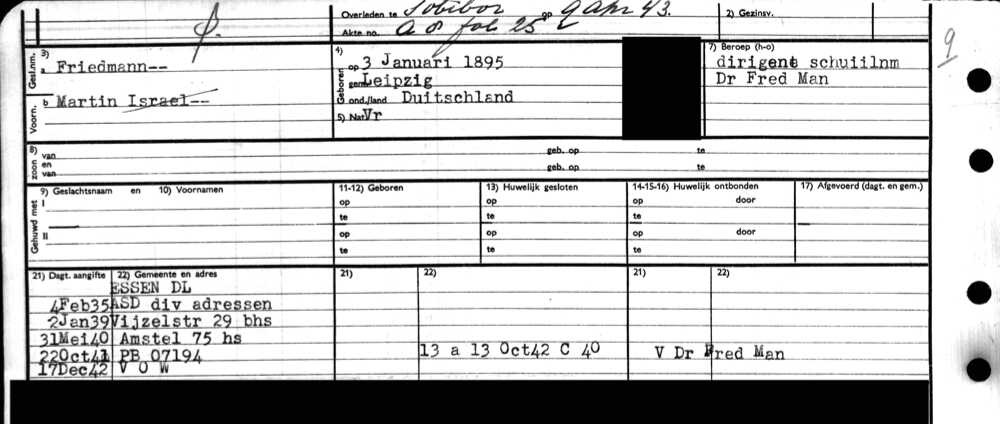 Overleden te Sobibor op 9 Apr 43.
Akte no. A 8 fol 25
2) Gezinsv.
9
Gesl.nm. 3) a Friedmann--
Voorn. b Martin Israel--
4) Geboren op 3 Januari 1895
gem Leipzig
ond./land Duitschland
5) Nat Vr
7) Beroep (h-o)
dirigent schuiilnm
Dr Fred Man
8) zoon en van geb. op te
van geb. op te
Gehuwd met 9) Geslachtsnaam en 10) Voornamen 11-12) Geboren 13) Huwelijk gesloten 14-15-16) Huwelijk ontbonden 17) Afgevoerd (dagt. en gem.)
I op op op door
te te te
II op op op door
te te te
21) Dagt. aangifte 22) Gemeente en adres 21) 22) 21) 22)
ESSEN DL
4Feb35 ASD div adressen
2Jan39 Vijzelstr 29 bhs
31Mei40 Amstel 75 hs
22Oct41 PB 07194 13 a 13 Oct42 C 40 V Dr Fred Man
17Dec42 V O W